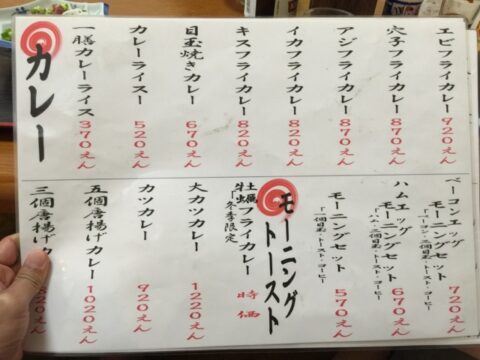 カレー
一膳カレーライス 370えん
カレーライス 520えん
目玉焼きカレー 670えん
キスフライカレー 820えん
イカフライカレー 820えん
アジフライカレー 870えん
穴子フライカレー 870えん
エビフライカレー 920えん
三個唐揚げカ 820えん
五個唐揚げカレー 1020えん
カツカレー 920えん
大カツカレー 1220えん
牡蠣フライカレー 時価
「冬季限定
モーニング
トースト
モーニングセット 570えん
「一個目玉・トースト・コーヒー
ハムエッグ
モーニングセット 670えん
「ハム・二個目玉・トースト・コーヒー
ベーコンエッグ
モーニングセット 720えん
「ベーコン・二個目玉・トースト・コーヒー